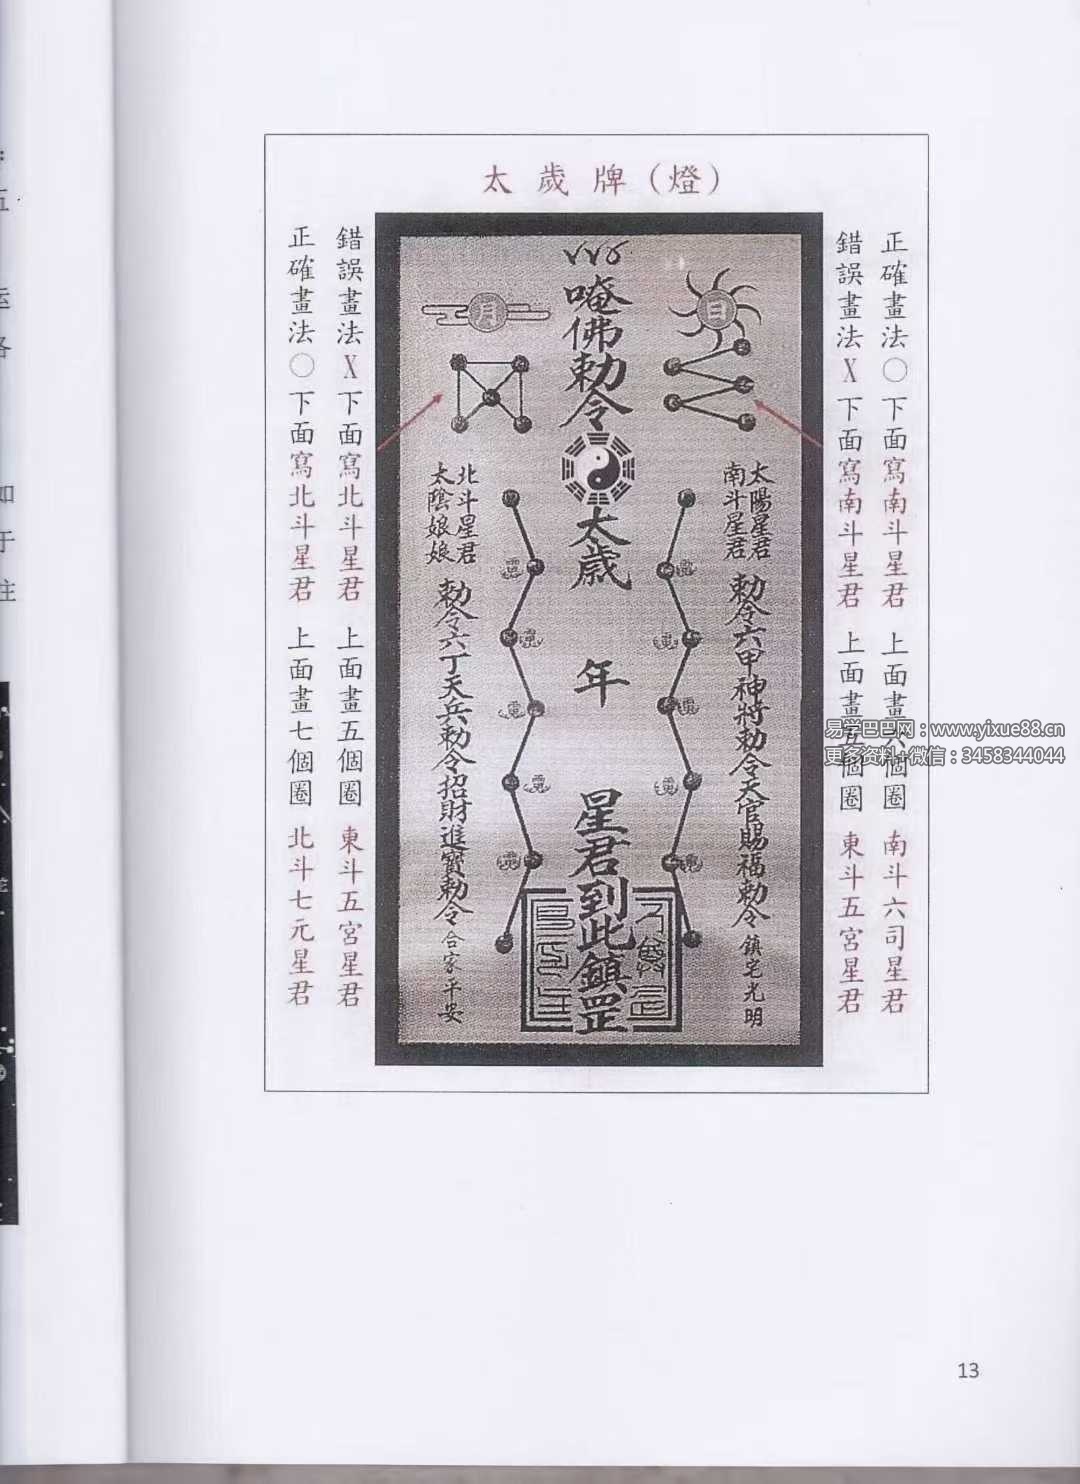 太歲牌（燈）
正確畫法○下面寫南斗星君 上面畫六個圈 南斗六司星君
錯誤畫法X下面寫南斗星君 上面畫五個圈 東斗五宮星君
日
太陽星君
南斗星君
勅令六甲神將勅令天官賜福勅令鎮宅光明
唵佛勅令
太歲 年 星君到此鎮罡
月
北斗星君
太陰娘娘
勅令六丁天兵勅令招財進寶勅令合家平安
錯誤畫法X下面寫北斗星君 上面畫五個圈 東斗五宮星君
正確畫法○下面寫北斗星君 上面畫七個圈 北斗七元星君
易学巴巴网：www.yixue88.cn
更多资料+微信：3458344044
13